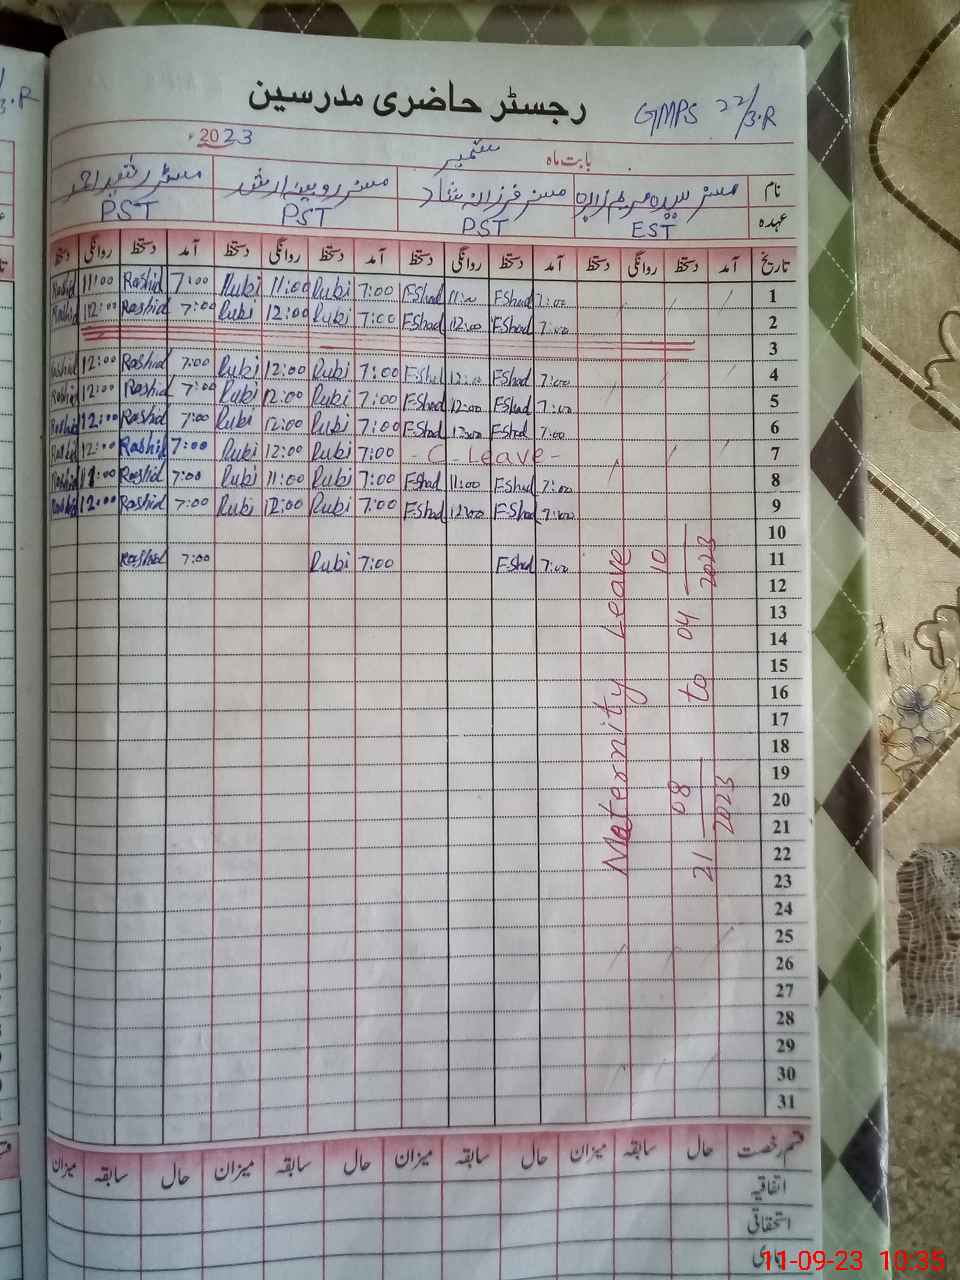 رجسٹر حاضری مدرسین
GMPS 22/3.R
2023
بابت ماہ ستمبر
نام مسز سیدہ مریم زاہرہ مسز فرزانہ شاد مسز روبینہ ارشد مسٹر رشید احمد
عہدہ EST PST PST PST
تاریخ آمد دستخط روانگی دستخط آمد دستخط روانگی دستخط آمد دستخط روانگی دستخط آمد دستخط روانگی دستخط
Rashid 11:00 Rashid 7:00 Rubi 11:00 Rubi 7:00 F.Shad 11:00 F.Shad 7:00 1
Rashid 12:00 Rashid 7:00 Rubi 12:00 Rubi 7:00 F.Shad 12:00 F.Shad 7:00 2
3
Rashid 12:00 Rashid 7:00 Rubi 12:00 Rubi 7:00 F.Shad 12:00 F.Shad 7:00 4
Rashid 12:00 Rashid 7:00 Rubi 12:00 Rubi 7:00 F.Shad 12:00 F.Shad 7:00 5
Rashid 12:00 Rashid 7:00 Rubi 12:00 Rubi 7:00 F.Shad 12:00 F.Shad 7:00 6
Rashid 12:00 Rashid 7:00 Rubi 12:00 Rubi 7:00 - C - Leave - 7
Rashid 11:00 Rashid 7:00 Rubi 11:00 Rubi 7:00 F.Shad 11:00 F.Shad 7:00 8
Rashid 12:00 Rashid 7:00 Rubi 12:00 Rubi 7:00 F.Shad 12:00 F.Shad 7:00 9
10
Rashid 7:00 Rubi 7:00 F.Shad 7:00 11
12
13
14
15
16
17
18
19
20
21
22
23
24
25
26
27
28
29
30
31
Maternity Leave
21 08 2023 to 04 10 2023
قسم رخصت حال سابقہ میزان حال سابقہ میزان حال سابقہ میزان حال سابقہ میزان
اتفاقیہ
استحقاقی
11-09-23 10:35